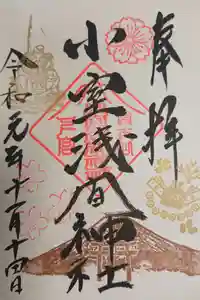 奉拝
小室浅間神社
令和元年十一月十四日